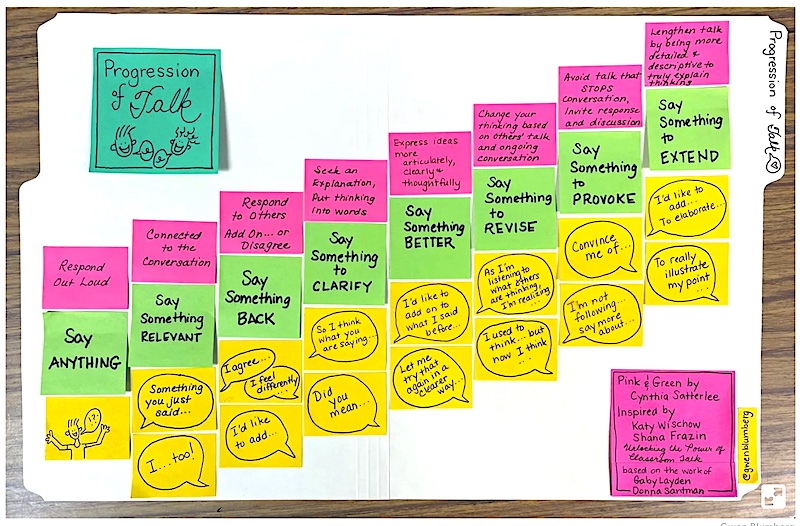 Progression
of Talk
Progression of Talk
Respond
Out Loud
Say
ANYTHING
!?
Connected
to the
Conversation
Say
Something
RELEVANT
Something
you just
said...
I...too!
Respond
to Others
Add On... or
Disagree
Say
Something
BACK
I agree...
I feel
differently...
I'd like
to add...
Seek an
Explanation,
Put thinking
into words
Say
Something
to
CLARIFY
So I think
what you
are saying...
Did
you
mean...
Express ideas
more
articulately,
clearly &
thoughtfully
Say
Something
BETTER
I'd like to
add on to
what I said
before...
Let me
try that
again in a
clearer
way...
Change your
thinking based
on others' talk
and ongoing
conversation
Say
Something
to
REVISE
As I'm
listening to
what others
are thinking,
I'm realizing
...
I used to
think... but
now I think
...
Avoid talk that
STOPS
conversation,
Invite response
and discussion
Say
Something
to
PROVOKE
Convince
me of...
I'm not
following...
say more
about...
Lengthen talk
by being more
detailed &
descriptive to
truly explain
thinking
Say
Something
to
EXTEND
I'd like to
add...
To elaborate...
To really
illustrate
my point
...
Pink & Green by
Cynthia Satterlee
Inspired by
Katy Wischow
Shana Frazin
Unlocking the Power of
Classroom Talk
based on the work of
Gaby Layden
Donna Santman
@gwenblumberg